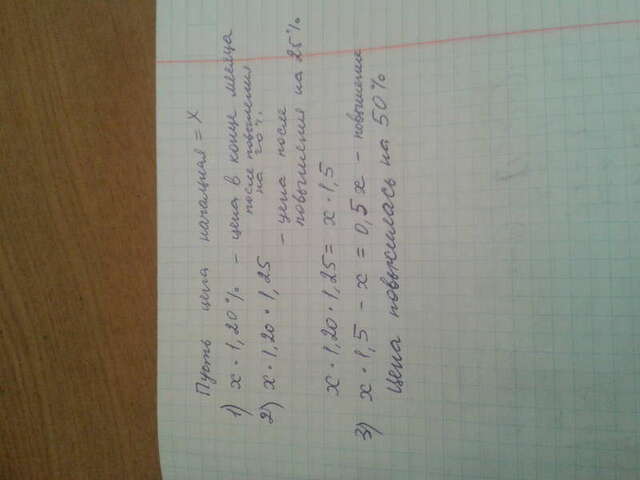 Пусть цена начальная = x
1) x · 1,20% - цена в конце месяца
после повышения
на 20%.
2) x · 1,20 · 1,25 - цена после
повышения на 25%
x · 1,20 · 1,25 = x · 1,5
3) x · 1,5 - x = 0,5 x - повышение
Цена повысилась на 50%